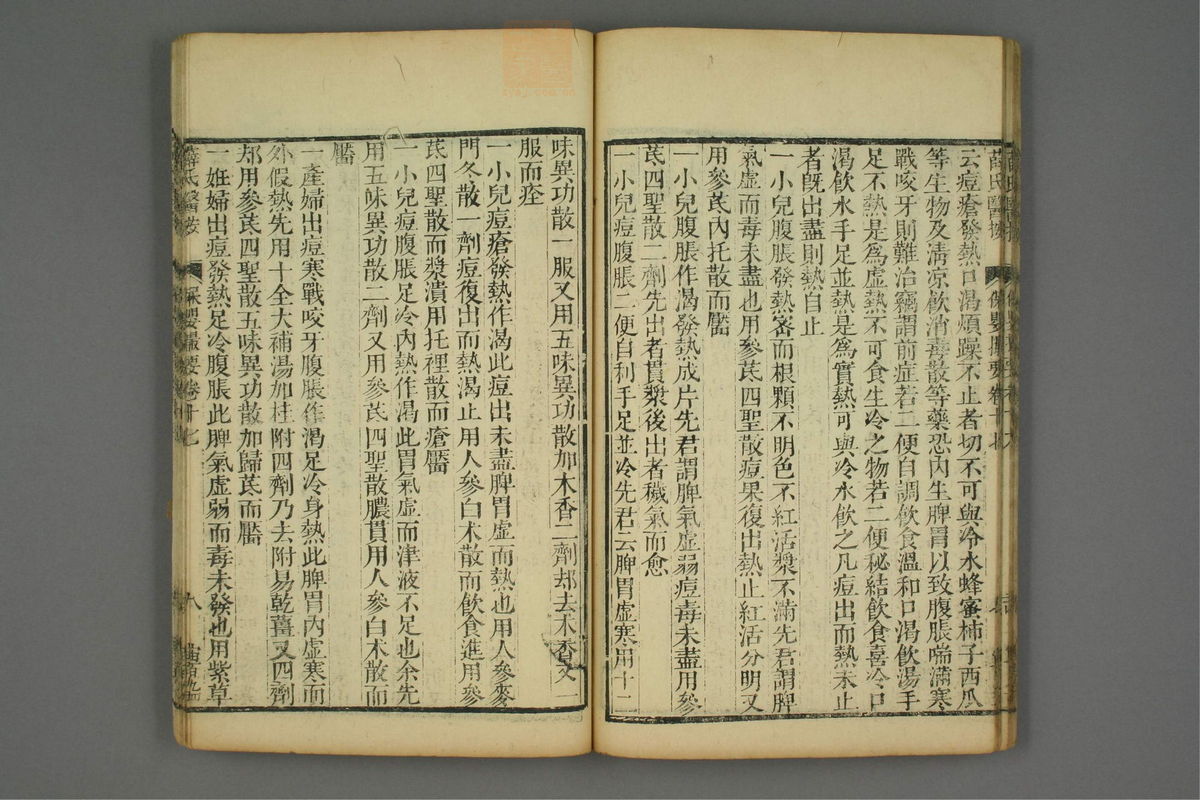 云痘瘡發熱口渴煩躁不止者切不可與冷水蜂蜜柿子西瓜
等生物及清凉飲消毒散等藥恐內生脾胃以致腹脹喘滿寒
戰咬牙則難治竊謂前症若二便自調飲食溫和口渴飲湯手
足不熱是爲虛熱不可食生冷之物若二便秘結飲食喜冷口
渴飲水手足並熱是爲實熱可與冷水飲之凡痘出而熱未止
者旣出盡則熱自止
一小兒腹脹發熱密而根顆不明色不紅活漿不滿先君謂脾
氣虛而毒未盡也用參芪四聖散痘果復出熱止紅活分明又
用參芪內托散而靨
一小兒腹脹作渴發熱成片先君謂脾氣虛弱痘毒未盡用參
芪四聖散二劑先出者貫漿後出者穢氣而愈
一小兒痘腹脹二便自利手足並冷先君云脾胃虛寒用十二
味異功散一服又用五味異功散加木香二劑却去木香又一
服而痊
一小兒痘瘡發熱作渴此痘出未盡脾胃虛而熱也用人參麥
門冬散一劑痘復出而熱渴止用人參白朮散而飲食進用參
芪四聖散而漿潰用托裡散而瘡靨
一小兒痘腹脹足冷內熱作渴此胃氣虛而津液不足也余先
用五味異功散二劑又用參芪四聖散膿貫用人參白朮散而
靨
一產婦出痘寒戰咬牙腹脹作渴足冷身熱此脾胃內虛寒而
外假熱先用十全大補湯加桂附四劑乃去附易乾薑又四劑
却用參芪四聖散五味異功散加歸芪而靨
一姙婦出痘發熱足冷腹脹此脾氣虛弱而毒未發也用紫草
薛氏醫按
保嬰撮要卷十七
八